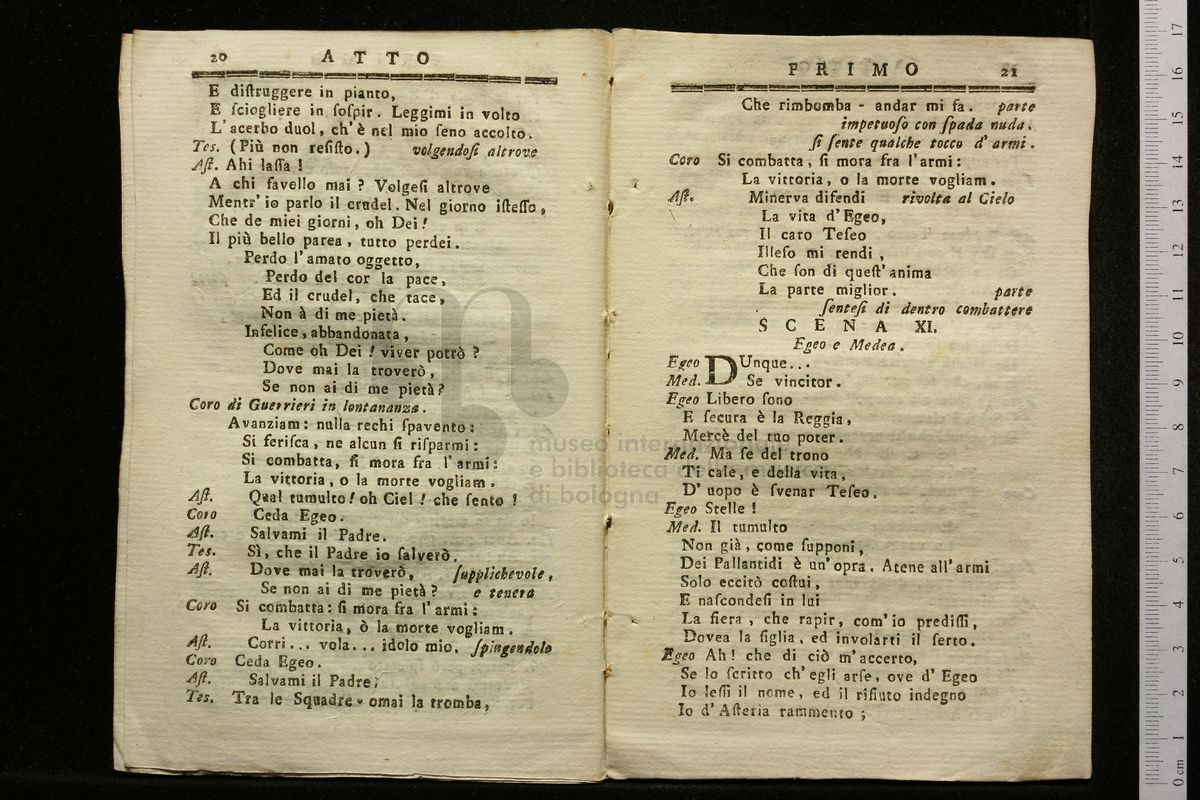 20 ATTO
E diſtruggere in pianto,
E ſciogliere in ſoſpir. Leggimi in volto
L'acerbo duol, ch'è nel mio ſeno accolto.
Tes. (Più non reſiſto.) volgendoſi altrove
Aſt. Ahi laſſa !
A chi favello mai ? Volgeſi altrove
Mentr' io parlo il crudel. Nel giorno iſteſſo,
Che de miei giorni, oh Dei !
Il più bello parea, tutto perdei.
Perdo l'amato oggetto,
Perdo del cor la pace,
Ed il crudel, che tace,
Non à di me pietà.
Infelice, abbandonata,
Come oh Dei ! viver potrò ?
Dove mai la troverò,
Se non ai di me pietà?
Coro di Guerrieri in lontananza.
Avanziam: nulla rechi ſpavento:
Si feriſca, ne alcun ſi riſparmi:
Si combatta, ſi mora fra l'armi:
La vittoria, o la morte vogliam.
Aſt. Qual tumulto ! oh Ciel ! che ſento !
Coro Ceda Egeo.
Aſt. Salvami il Padre.
Tes. Sì, che il Padre io ſalverò.
Aſt. Dove mai la troverò, ſupplichevole,
Se non ai di me pietà ? e tenera
Coro Si combatta: ſi mora fra l'armi:
La vittoria, ò la morte vogliam.
Aſt. Corri... vola... idolo mio. ſpingendolo
Coro Ceda Egeo.
Aſt. Salvami il Padre;
Tes. Tra le Squadre - omai la tromba,
PRIMO 21
Che rimbomba - andar mi fa. parte
impetuoſo con ſpada nuda.
ſi ſente qualche tocco d'armi.
Coro Si combatta, ſi mora fra l'armi:
La vittoria, o la morte vogliam.
Aſt. Minerva difendi rivolta al Cielo
La vita d'Egeo,
Il caro Teſeo
Illeſo mi rendi,
Che ſon di queſt'anima
La parte miglior. parte
ſenteſi di dentro combattere
SCENA XI.
Egeo e Medea.
Egeo DUnque...
Med. Se vincitor.
Egeo Libero ſono
E ſecura è la Reggia,
Mercè del tuo poter.
Med. Ma ſe del trono
Ti cale, e della vita,
D' uopo è ſvenar Teſeo.
Egeo Stelle !
Med. Il tumulto
Non già, come ſupponi,
Dei Pallantidi è un'opra. Atene all'armi
Solo eccitò coſtui,
E naſcondeſi in lui
La fiera, che rapir, com'io prediſſi,
Dovea la figlia, ed involarti il ſerto.
Egeo Ah! che di ciò m'accerto,
Se lo ſcritto ch'egli arſe, ove d' Egeo
Io leſſi il nome, ed il rifiuto indegno
Io d'Aſteria rammento ;
museo internazionale
e biblioteca
di bologna
0 cm 1 2 3 4 5 6 7 8 9 10 11 12 13 14 15 16 17